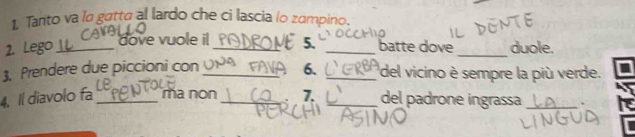 1. Tanto va la gatta al lardo che ci lascia lo zampino.
2. Lego IL CAVALLO dove vuole il PADRONE
3. Prendere due piccioni con UNA FAVA
4. Il diavolo fa LE PENTOLE ma non I CO PERCHI
5. L'OCCHIO batte dove IL DENTE duole.
6. L'ERBA del vicino è sempre la più verde.
7. L' ASINO del padrone ingrassa LA LINGUA.